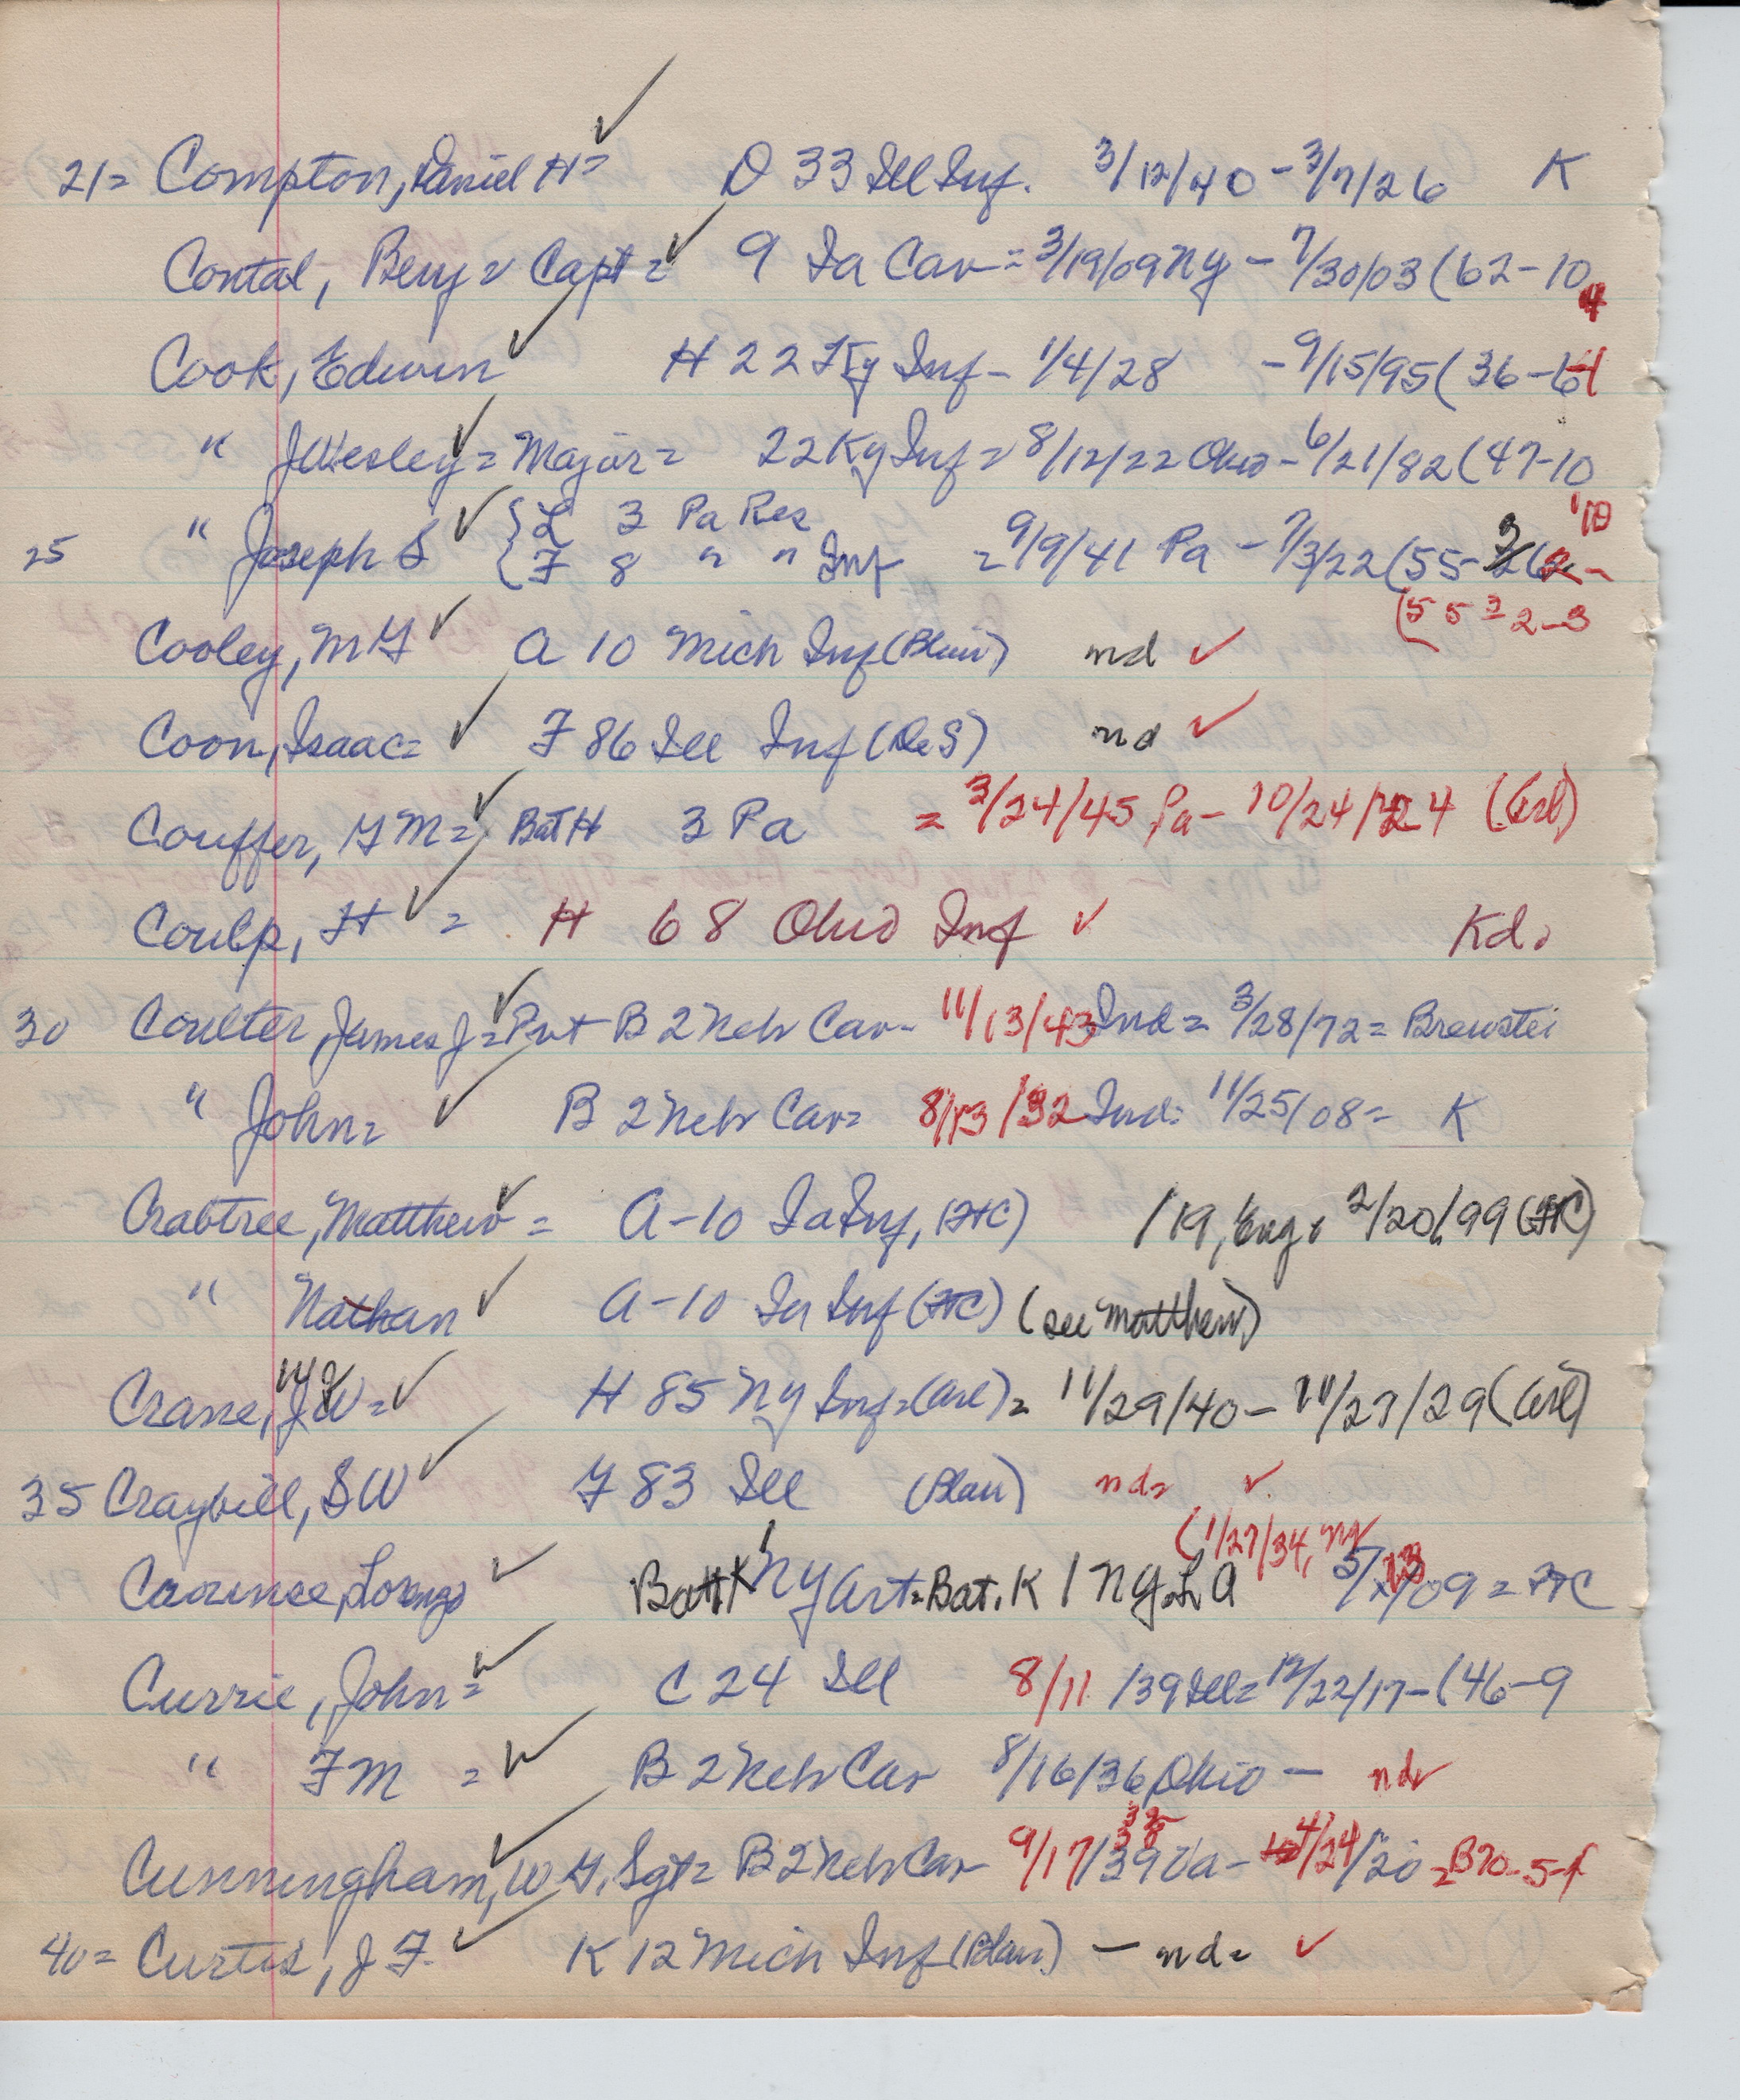 21= Compton, Daniel H= ✓ D 33 Ill Inf. 3/12/40 - 3/7/26 K
Contal, Beny = Capt = ✓ 9 Ia Cav = 3/19/09 Ny - 7/30/03 (62-10
4
Cook, Edwin ✓ H 22 Ky Inf - 1/4/28 - 9/15/95 (36-6
" J Wesley = Major = ✓ 22 Ky Inf = 8/12/22 Ohio - 6/21/82 (47-10
{ L 3 Pa Res
25 " Joseph S ✓ { F 8 " " Inf = 9/9/41 Pa - 7/3/22 (55-
(55 2 2-3
Cooley, M G ✓ A 10 Mich Inf (Blair) nd ✓
Coon, Isaac= ✓ F 86 Ill Inf (DeS) nd ✓
Couffer, G M = ✓ Bat H 3 Pa = 3/24/45 Pa - 10/24/24 (Arl)
Coulp, H ✓ = H 68 Ohio Inf ✓ Kd.
30 Coulter, James J = Pvt ✓ B 2 Neb Cav - 11/13/43 Ind = 3/28/72 = Brewster
" John= ✓ B 2 Neb Cav= 8/13/32 Ind= 11/25/08= K
Crabtree, Matthew ✓ = A-10 Ia Inf, (FtC) /19, Eng. 2/20/99 (FtC)
" Nathan ✓ A-10 Ia Inf (FtC) (see Matthew)
Crane, J W = ✓ H 85 Ny Inf = (Arl) = 11/29/40 - 11/27/29 (Arl)
35 Craybill, S W ✓ F 83 Ill (Blair) nd= ✓
(1/27/34, Ny
Lorenzo ✓ Batt K 1 Ny Art = Bat. K 1 Ny L A 5/13/09 = FtC
Currie, John= ✓ C 24 Ill 8/11/39 Ill = 12/22/17 - (46-9
" F M = ✓ B 2 Neb Cav 8/16/36 Ohio - nd ✓
32
38
Cunningham, W G, Sgt= ✓ B 2 Neb Cav 9/17/39 Va - 4/24/20 = B70-5-f
40= Curtis, J F. ✓ K 12 Mich Inf (Blair) - nd= ✓